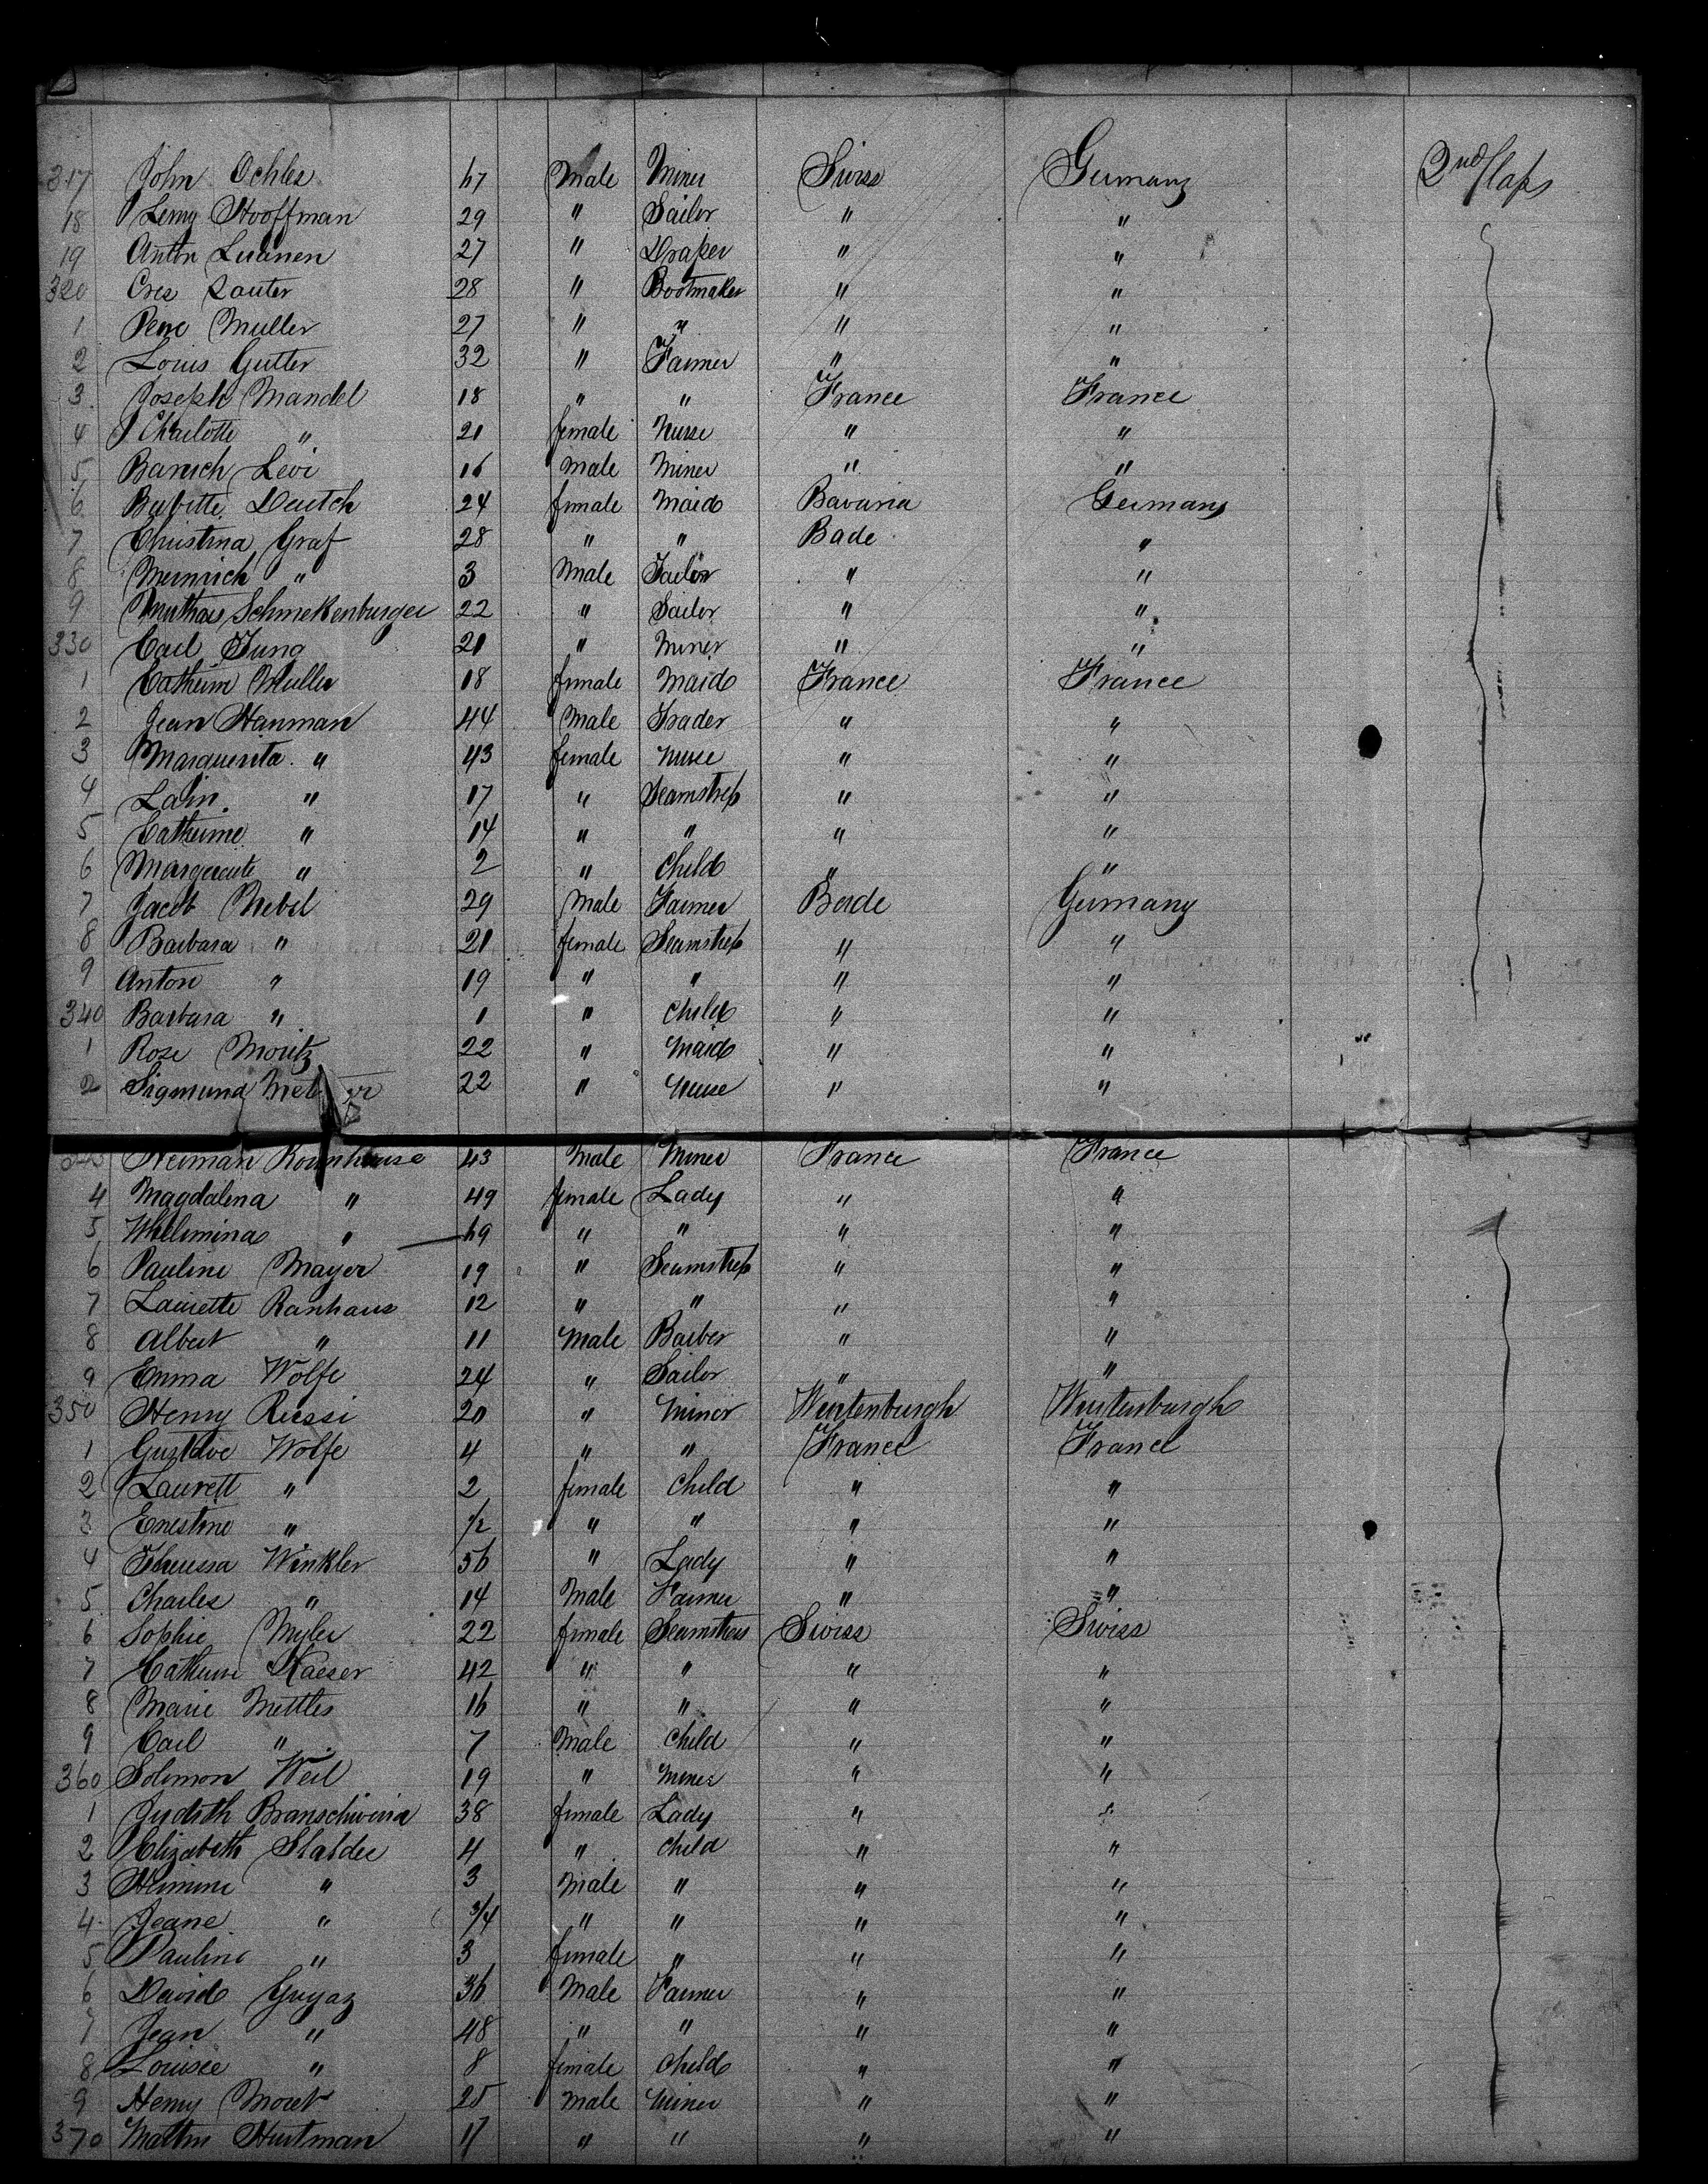 317 John Ochles 67 Male Miner Swiss Germany 2nd Class
18 Leny Hooffman 29 " Sailor " "
19 Anton Luanen 27 " Draper " "
320 Cres Sauter 28 " Bootmaker " "
1 Muller 27 " " " "
2 Louis Gutter 32 " Farmer " "
3 Joseph Mandel 18 " " France France
4 Charlotte " 21 female Nurse " "
5 Baruch Levi 16 male Miner " "
6 Babitte Deutch 24 female Maid Bavaria Germany
7 Christina Graf 28 " " Bade "
8 Meinrich " 3 Male Tailor " "
9 Mathas Schmekenburger 22 " Sailor " "
330 Carl Jung 21 " Miner " "
1 Catherine Muller 18 female Maid France France
2 Jean Hanman 44 Male Trader " "
3 Marguerita " 43 female nurse " "
4 " 17 " Seamstress " "
5 Catherine " 14 " " " "
6 Margereute " 2 " Child " "
7 Jacob Nebel 29 Male Farmer Bade Germany
8 Barbara " 21 female Seamstress " "
9 Anton " 19 " " " "
340 Barbara " 1 " Child " "
1 Rose Moritz 22 " Maid " "
2 Sigmund 22 " Nurse " "
343 Heiman Rounhause 43 Male Miner France France
4 Magdalena " 49 female Lady " "
5 Whelimina " 69 " " " "
6 Pauline Mayer 19 " Seamstress " "
7 Laurette Ranhaus 12 " " " "
8 Albert " 11 Male Barber " "
9 Emma Wolfe 24 " Sailor " "
350 Henry Reissi 20 " Miner Wurtenburgh Wurtenburgh
1 Gustave Wolfe 4 " " France France
2 Laurett " 2 female Child " "
3 Enestine " 1/2 " " " "
4 Theressa Winkler 56 " Lady " "
5 Charles " 14 Male Farmer " "
6 Sophie Myler 22 female Seamstress Swiss Swiss
7 Catherine Kaeser 42 " " " "
8 Marie Mettles 16 " " " "
9 Carl " 7 Male Child " "
360 Solimon Weil 19 " Miner " "
1 Judith 38 female Lady " "
2 Elizabeth Stalder 4 " child " "
3 " 3 Male " " "
4 Jeane " 3/4 " " " "
5 Pauline " 3 female " " "
6 David Guyaz 36 Male Farmer " "
7 Jean " 48 " " " "
8 Louisee " 8 female Child " "
9 Henry Moret 25 male Miner " "
370 Hurtman 17 " " " "